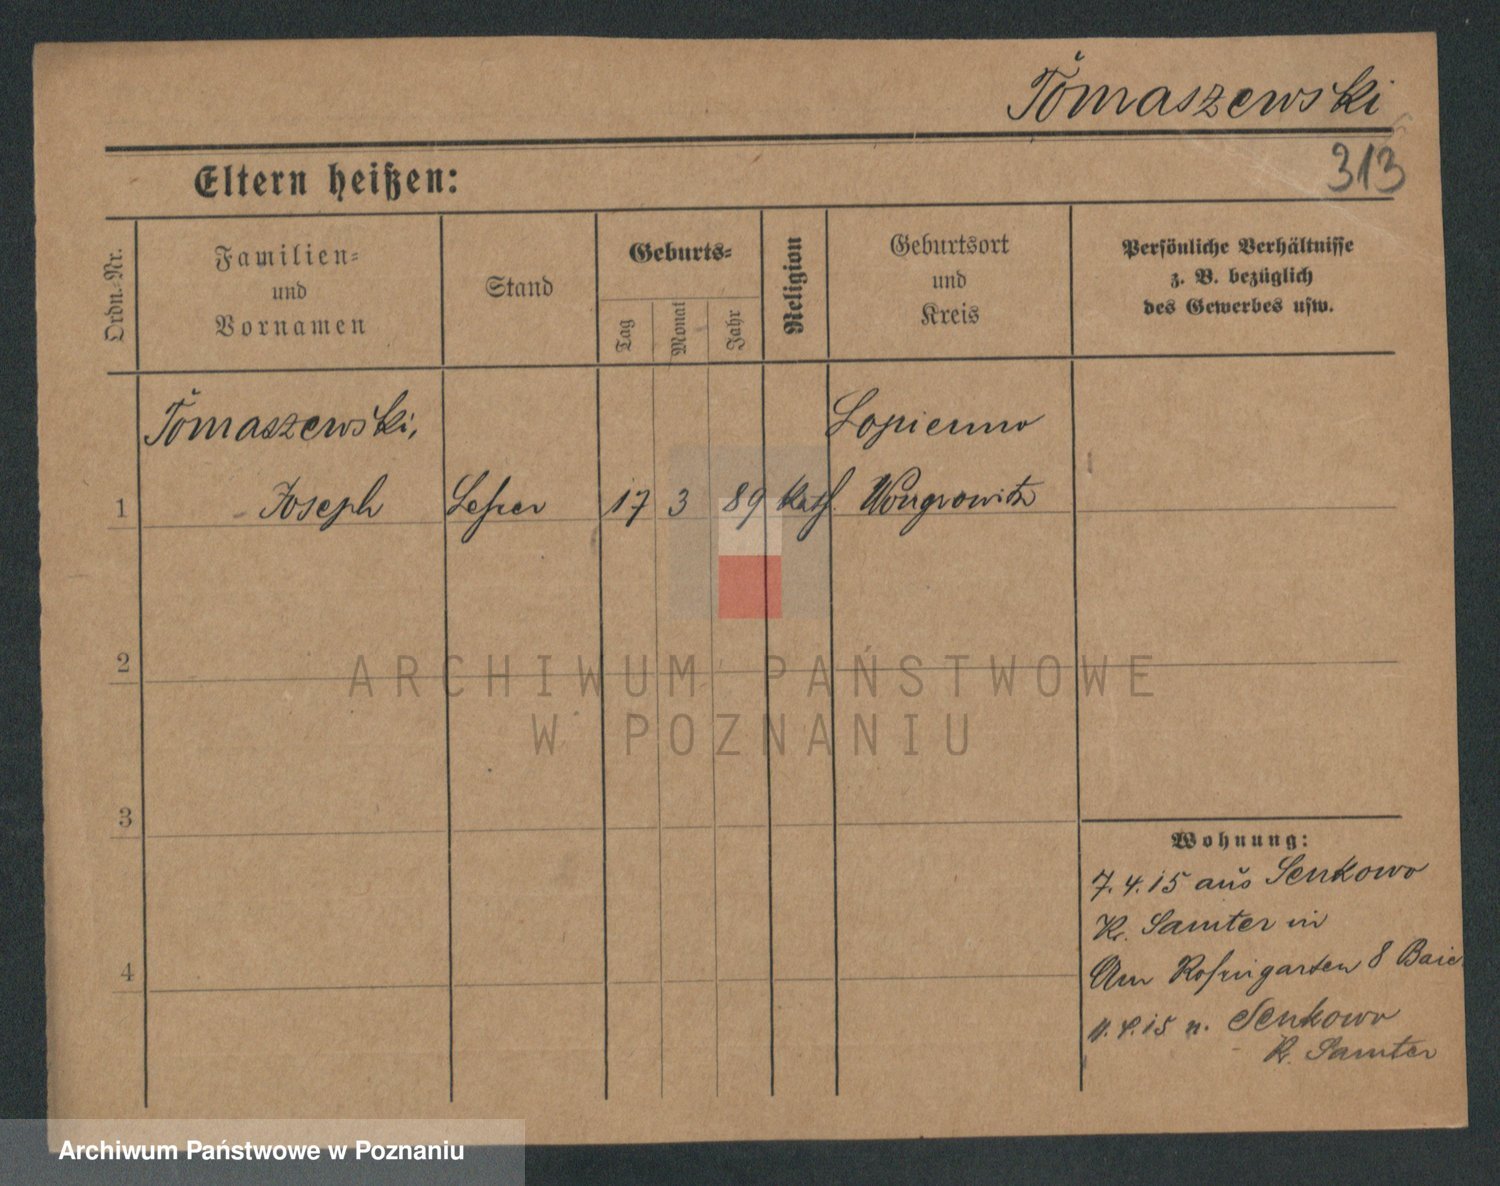 Tomaszewski
313
Eltern heißen:
Ordn.-Nr.
Familien-
und
Vornamen
Stand
Geburts-
Tag
Monat
Jahr
Religion
Geburtsort
und
Kreis
Persönliche Verhältnisse
z. B. bezüglich
des Gewerbes usw.
Tomaszewski,
Lopienno
1 Joseph Lehrer 17 3 89 kath. Wongrowitz
2
ARCHIWUM PAŃSTWOWE
W POZNANIU
3
Wohnung:
7.4.15 aus Senkowo
Kr. Samter in
4
Am 8
.15 n. Senkowo
Kr. Samter
Archiwum Państwowe w Poznaniu